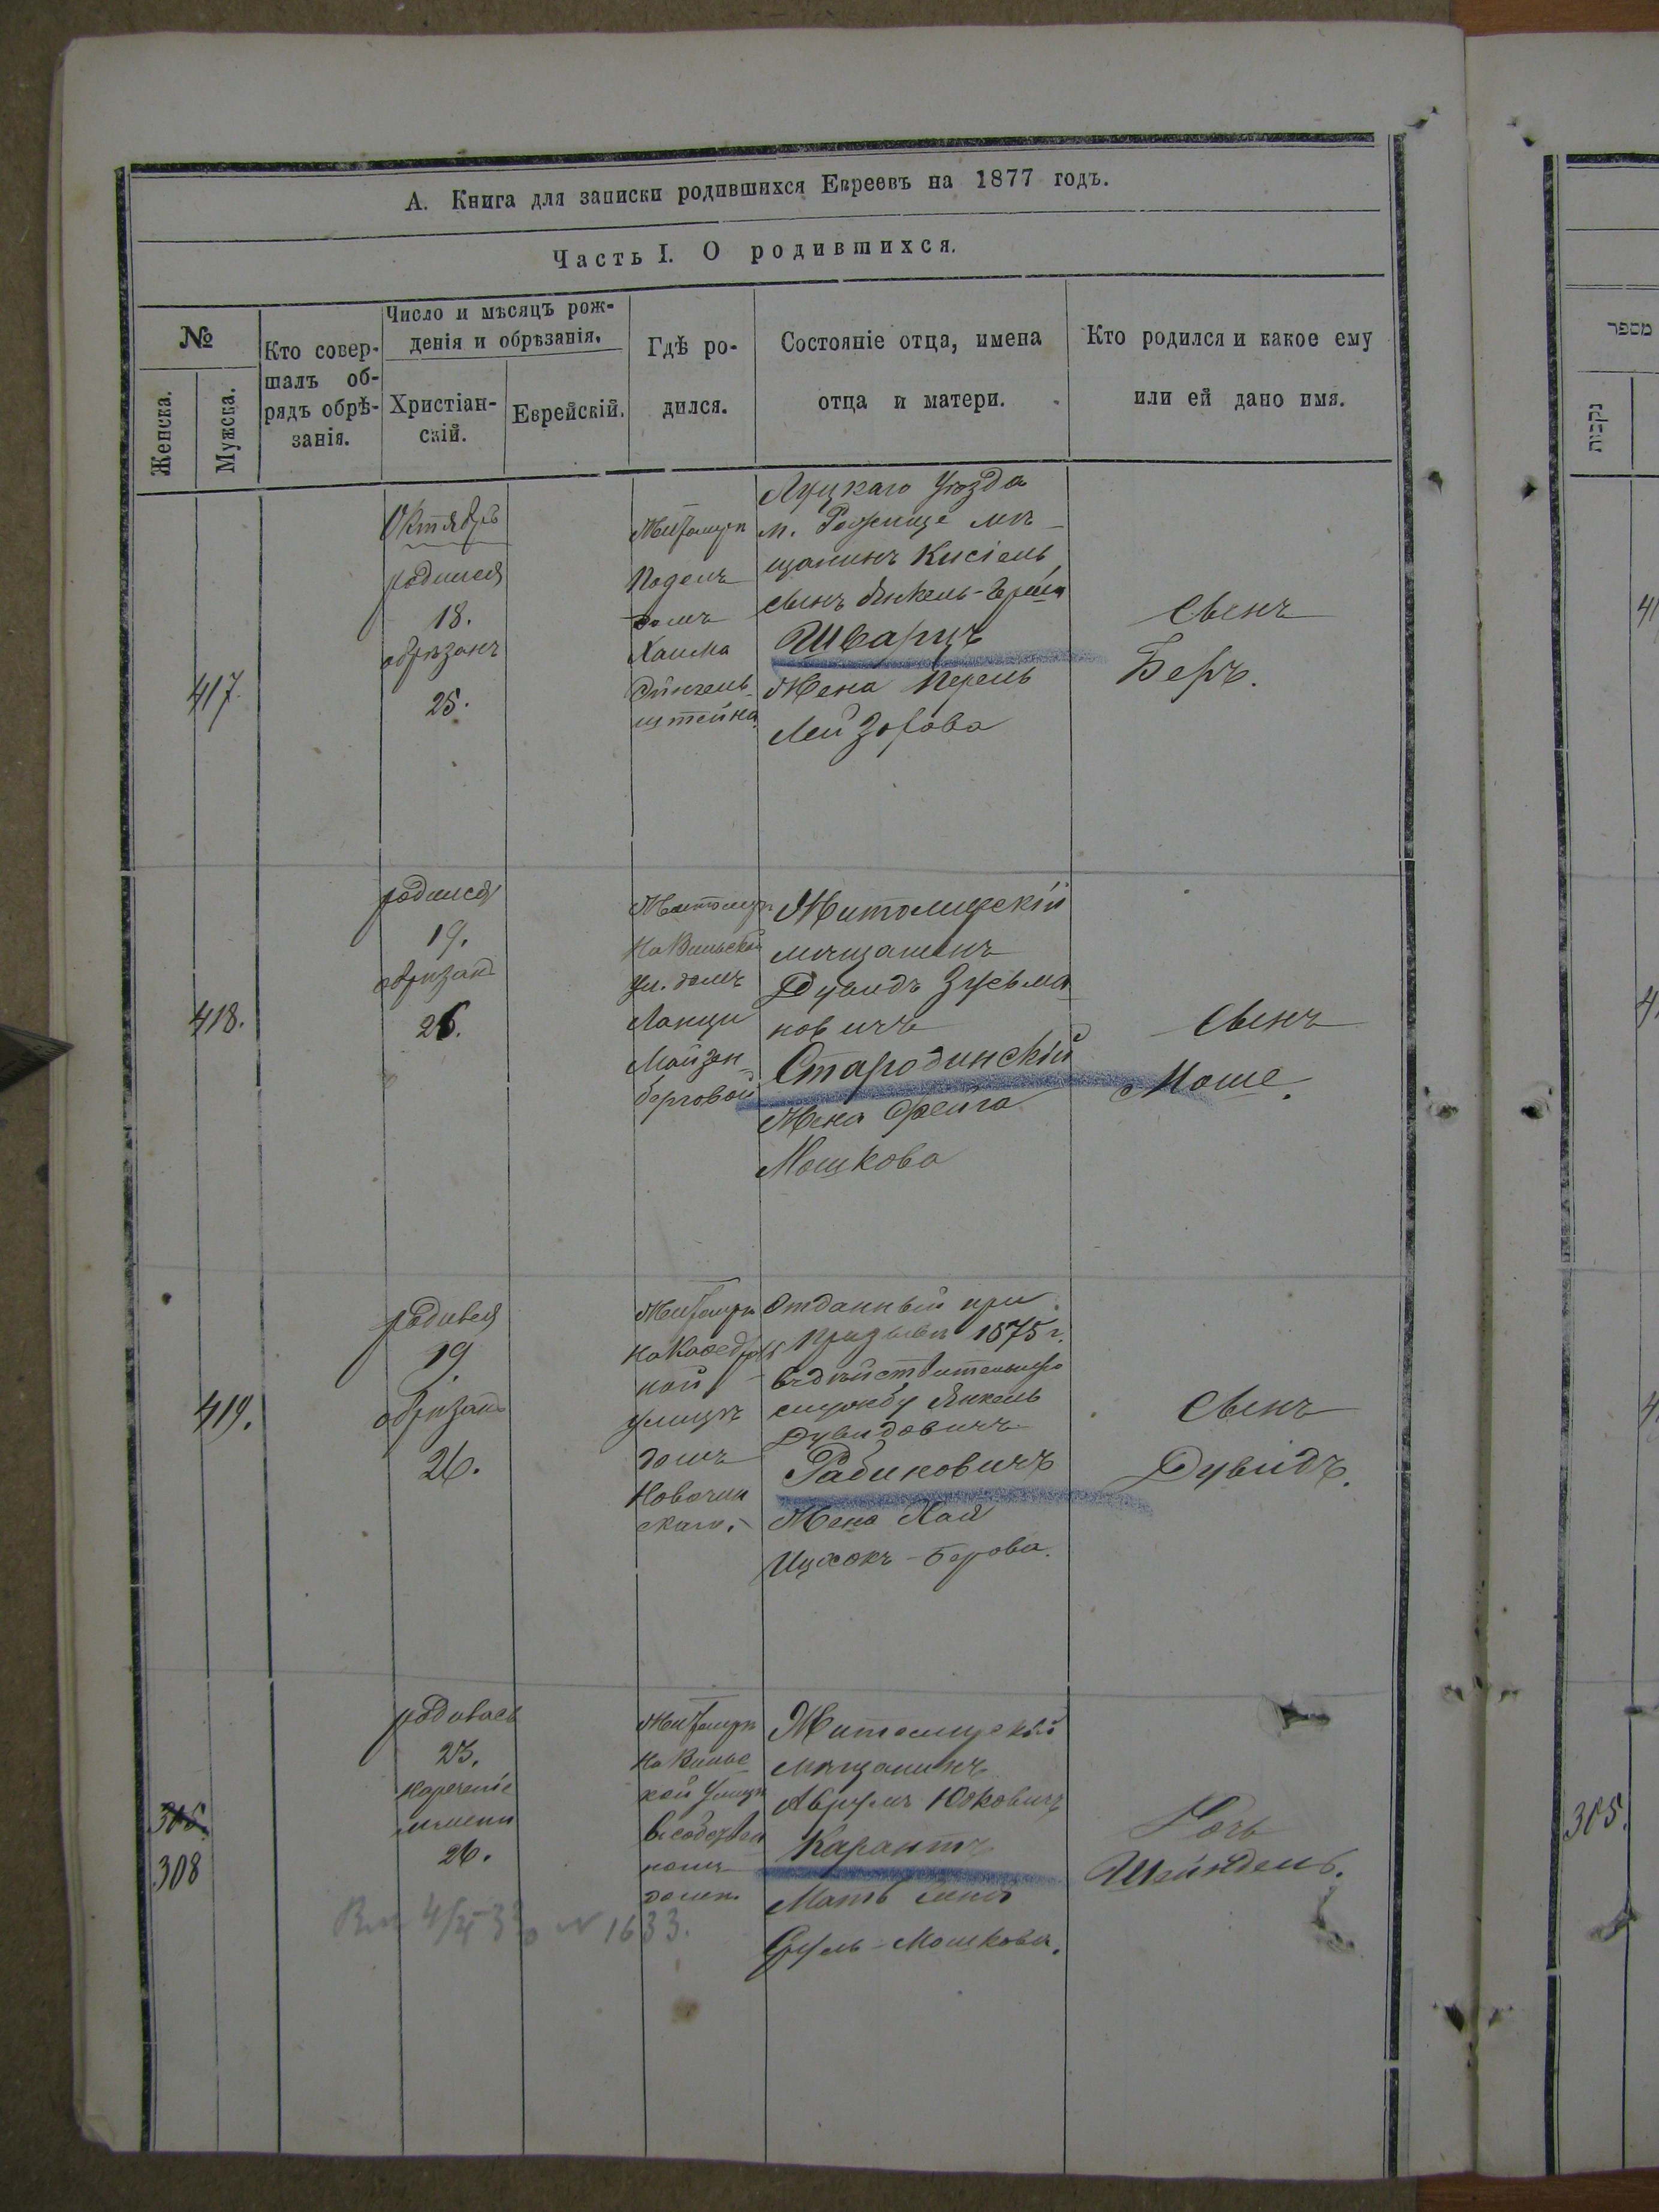 А. Книга для записки родившихся Евреевъ на 1877 годъ.
Часть I. О родившихся.
№
Женска.
Мужска.
Кто совер-
шалъ об-
рядъ обрѣ-
занія.
Число и мѣсяцъ рож-
денія и обрѣзанія.
Христіан-
скій.
Еврейскій.
Гдѣ ро-
дился.
Состояніе отца, имена
отца и матери.
Кто родился и какое ему
или ей дано имя.
417.
Октябрь
родился
18.
обрѣзанъ
25.
Житомиръ
домъ
Хаима
штейна
Луцкаго уѣзда
м. Рожище мѣ-
щанинъ Кисіель
Шварцъ
Жена Перель
Лейзорова
Сынъ
Беръ.
418.
родился
19.
обрѣзанъ
26.
Житомиръ
на Вильской
ул. домъ
Майзен-
берговой
Житомирскій
мѣщанинъ
Дувидъ Зусьма-
новичъ
Стародинскій
Жена Фейга
Мошкова
Сынъ
Моше.
419.
родився
19
обрѣзанъ
26.
Житомиръ
на Кафедраль
ной
улицѣ
домъ
скаго.
Отданный при
призывѣ 1875 г.
въ дѣйствительную
службу Янкель
Дувидовичъ
Рабиновичъ
Жена Хая
Ицхокъ-Берова.
Сынъ
Дувидъ.
305.
308
родилась
23.
нареченіе
имени
26.
Житомиръ
на Вильс-
кой улицѣ
въ собствен
номъ
домѣ.
Житомирскій
мѣщанинъ
Аврумъ Юдковичъ
Карантъ
Мать
Сруль-Мошкова.
Дочь
Шейндель.
N 1633.
מספר
נקבות
305.